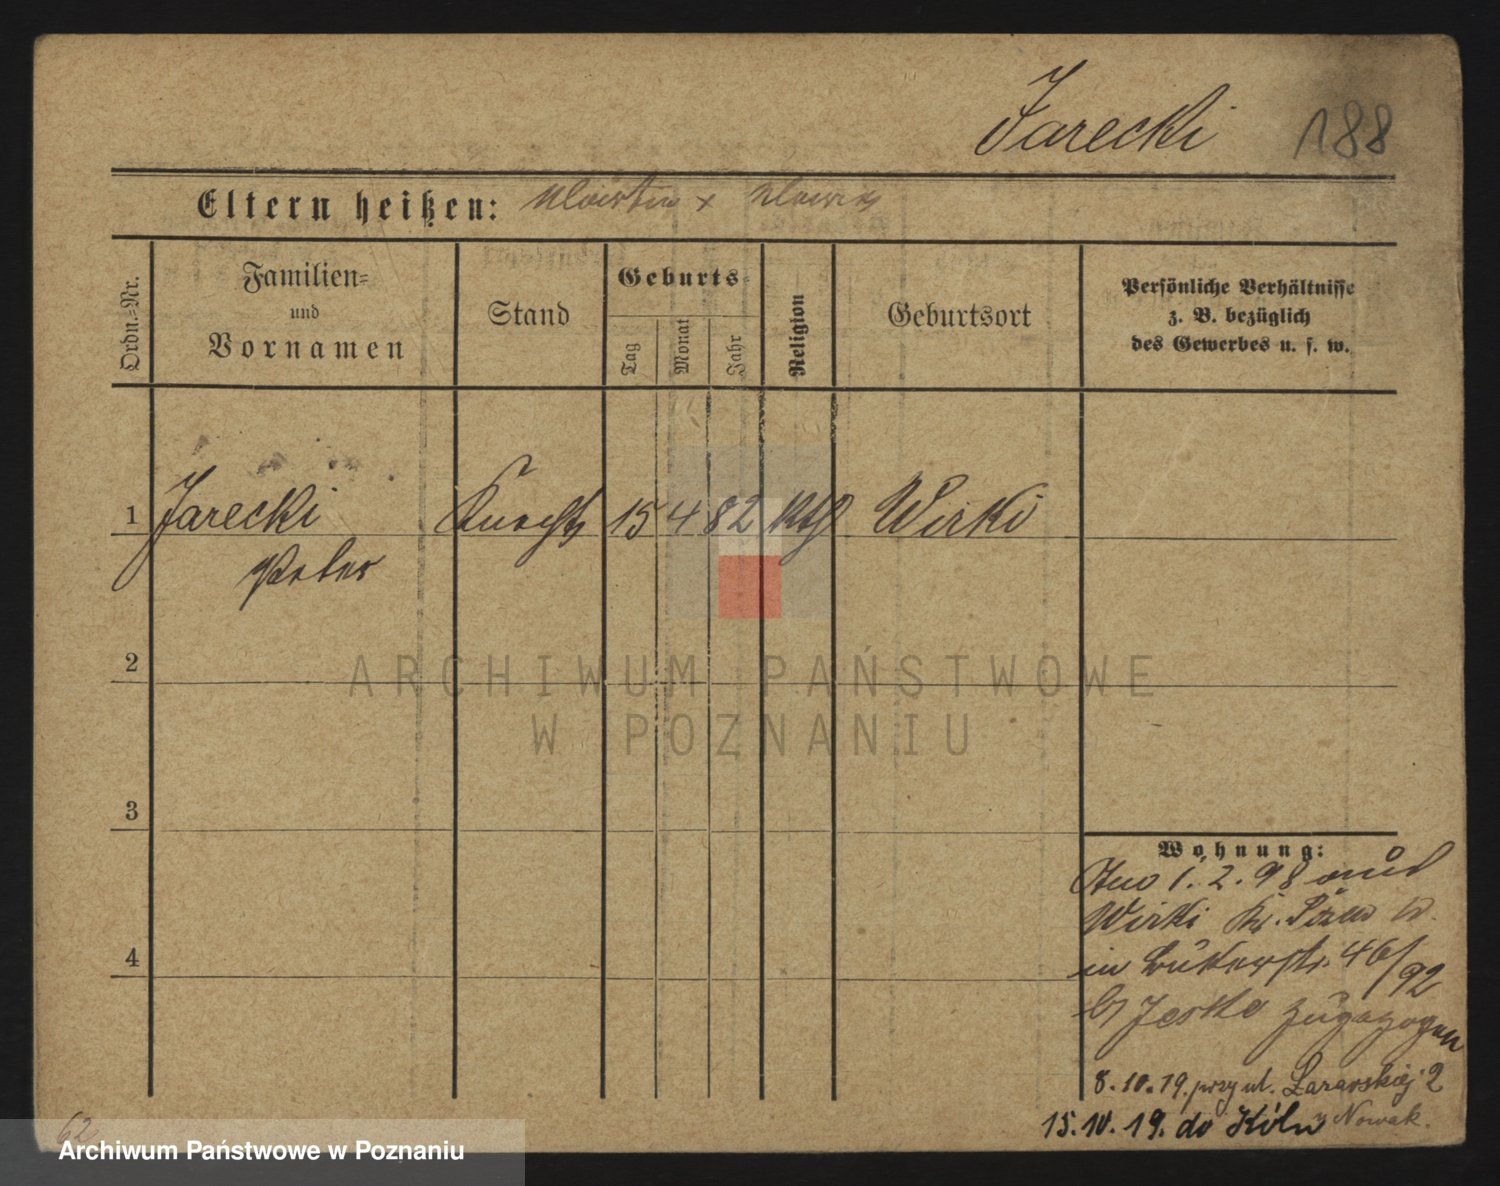 Jarecki 188
Eltern heißen:
Ordn.=Nr.
Familien=
und
Vornamen
Stand
Geburts=
Tag
Monat
Jahr
Religion
Geburtsort
Persönliche Verhältnisse
z. B. bezüglich
des Gewerbes u. s. w.
1 Jarecki Knecht 15 4 82 kth Wirki
Peter
2
ARCHIWUM PAŃSTWOWE
W POZNANIU
3
Wohnung:
1. 2. 98 aus
Wirki Kr. Posen
in 46/
92
Jeske zugezogen
4
8.10.19. przy ul. Łazarskiej 2
15.10.19. do Köln Nowak.
62
Archiwum Państwowe w Poznaniu